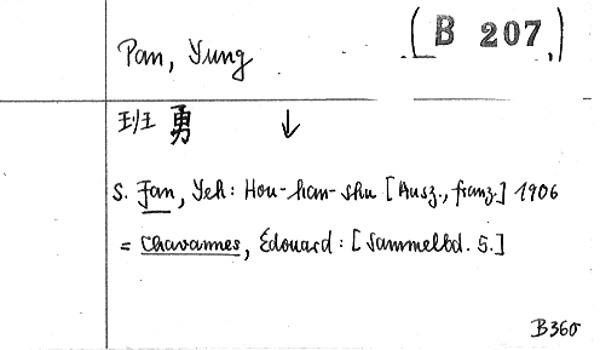 (B 207.)
Pan, Yung
班 勇 ↓
s. Fan, Yeh: Hou-han-shu [Ausz., franz.] 1906
= Chavannes, Édouard: [Sammelbd. 5.]
B360